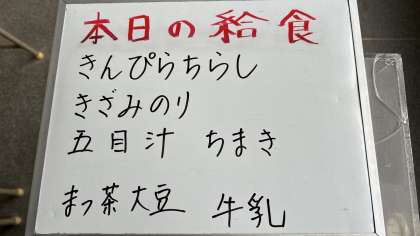 本日の給食
きんぴらちらし
きざみのり
五目汁 ちまき
まっ茶大豆 牛乳